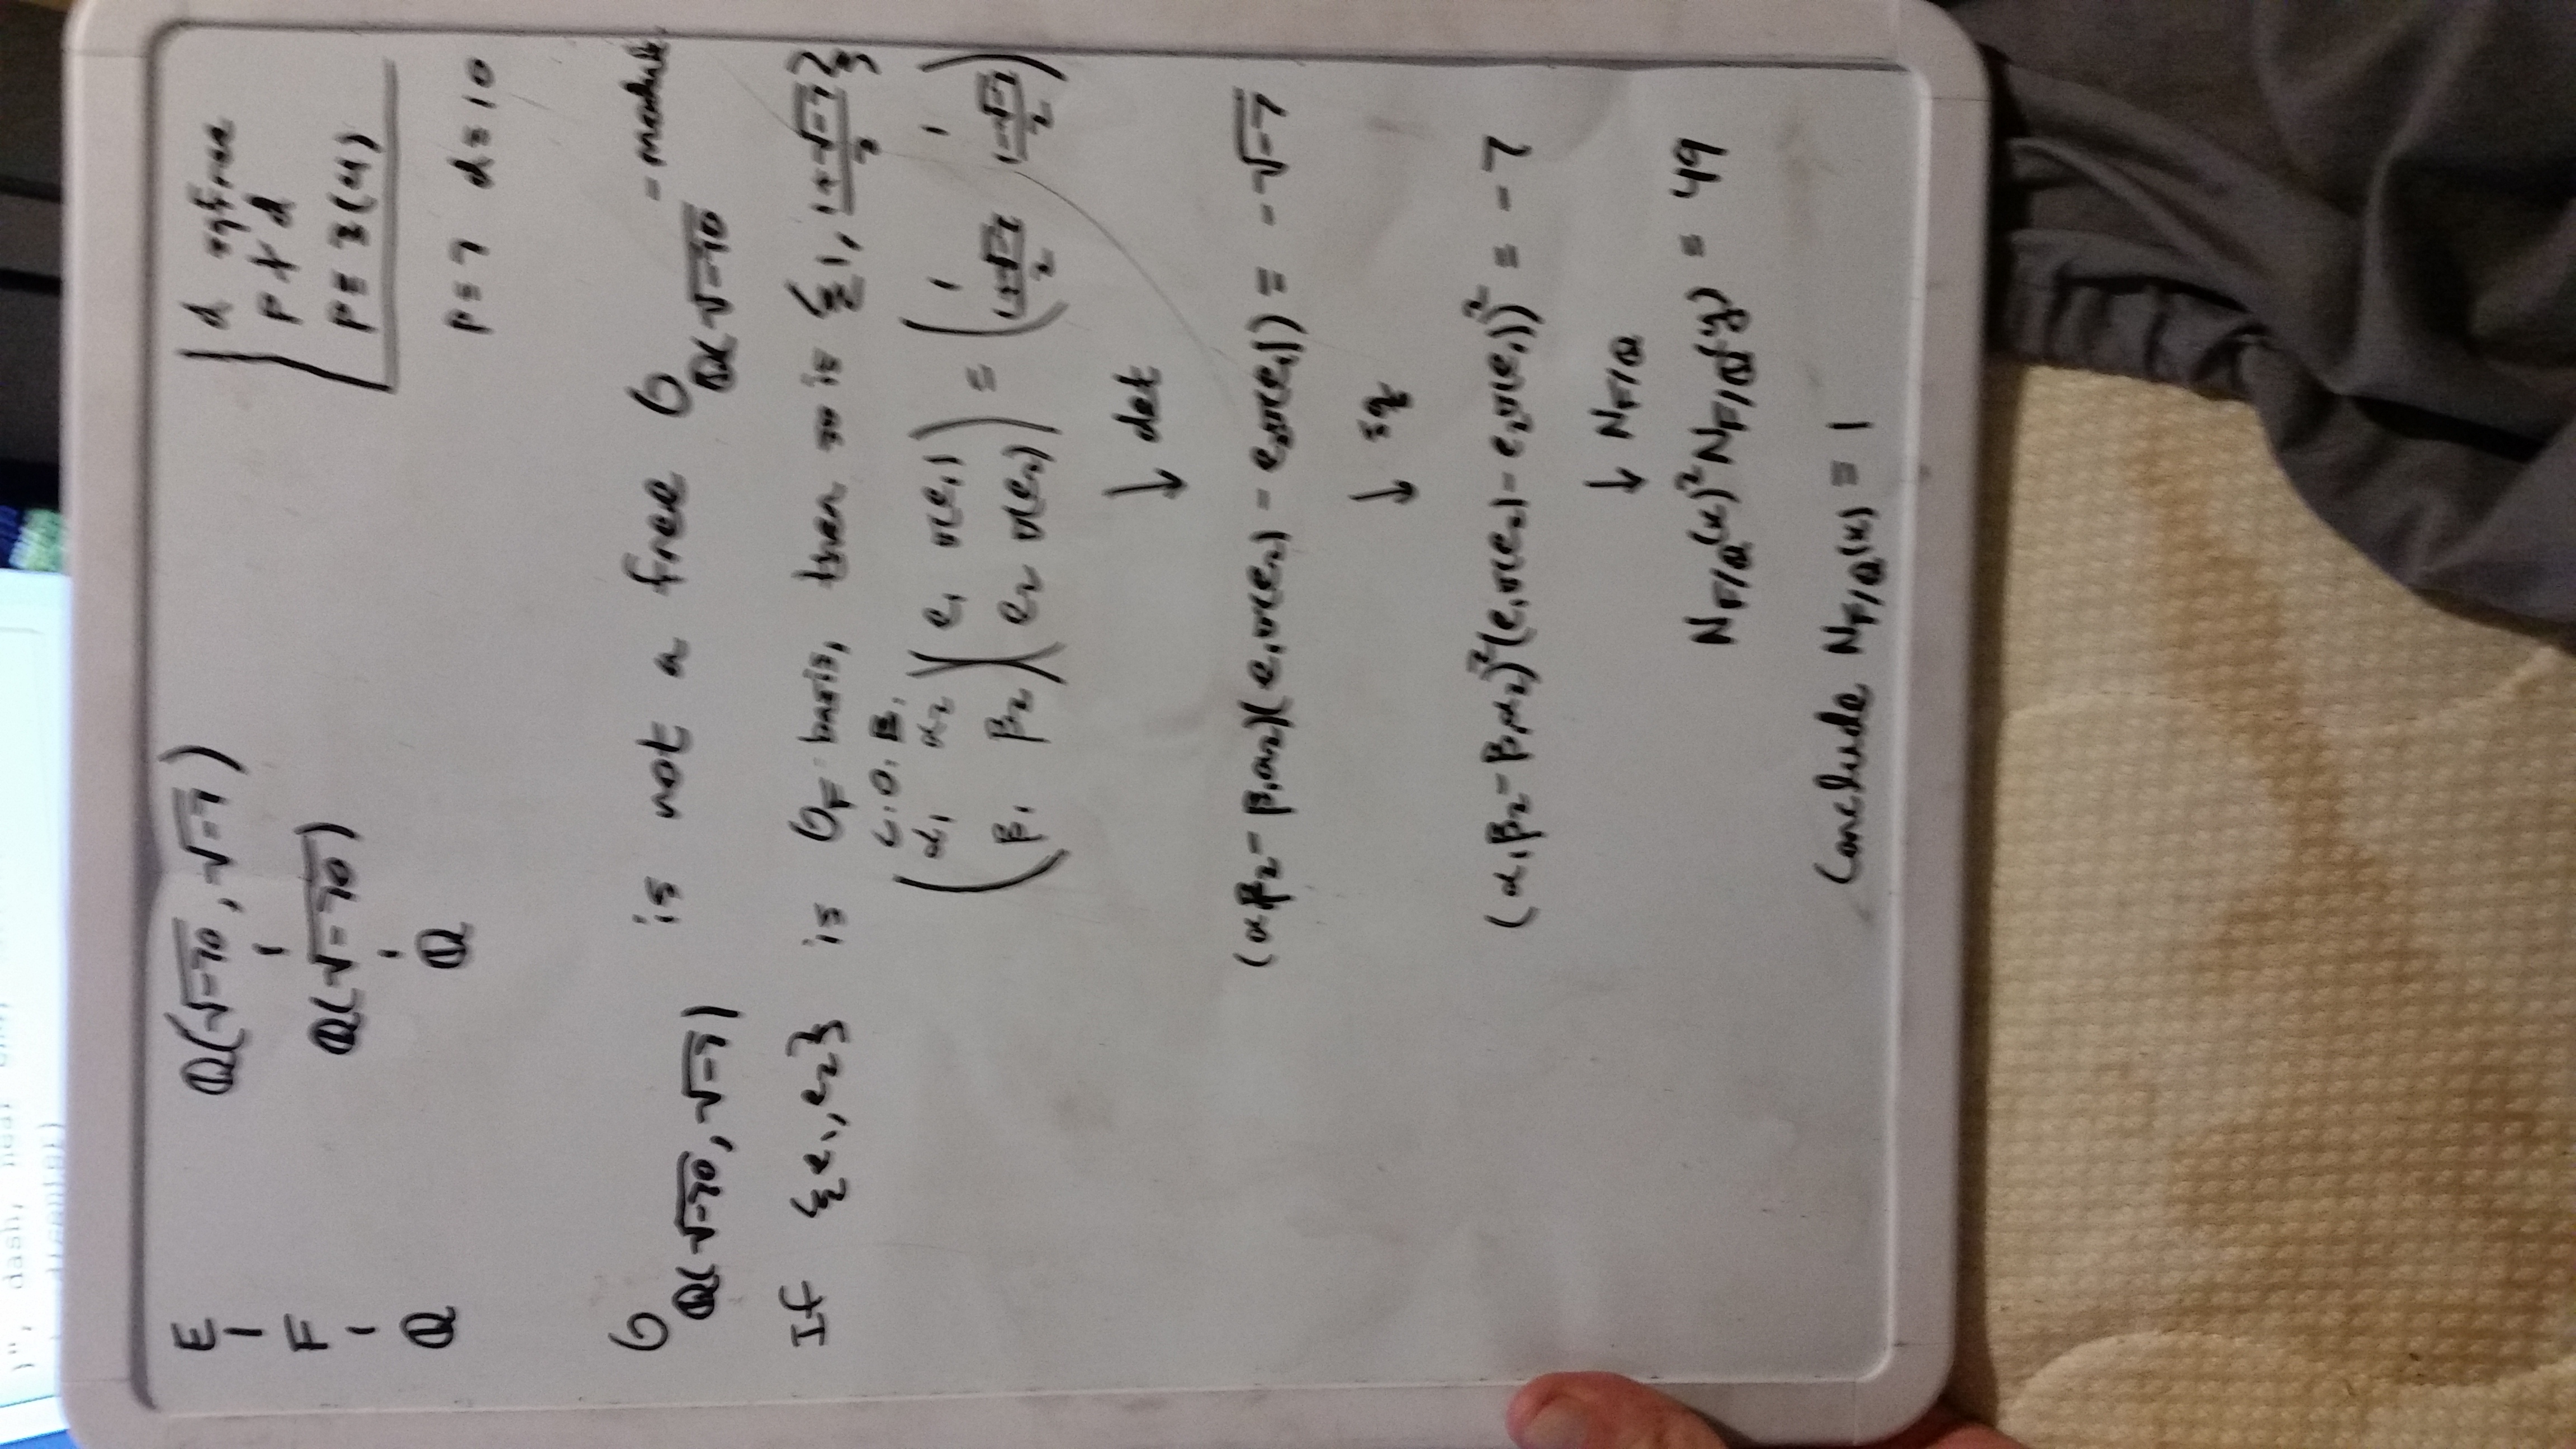 )", dash, near end,
E Q(√-70, √-7) d sqfree
| | p ∤ d
F Q(√-70) p ≡ 3(4)
| |
Q Q p = 7 d = 10
O_Q(√-70, √-7) is not a free O_Q(√-70 -module.
If {e₁, e₂} is O_F basis, then so is {1, (1+√-7)/2}
C.O.B.
(α₁ α₂)(e₁ σ(e₁)) = (1 1)
(β₁ β₂)(e₂ σ(e₂)) ((1+√-7)/2 (1-√-7)/2)
↓ det
(α₁β₂ - β₁α₂)(e₁σ(e₂) - e₂σ(e₁)) = -√-7
↓ sq
(α₁β₂ - β₁α₂)²(e₁σ(e₂) - e₂σ(e₁))² = -7
↓ N_F/Q
N_F/Q(x)² N_F/Q(y) = 49
Conclude N_F/Q(x) = 1